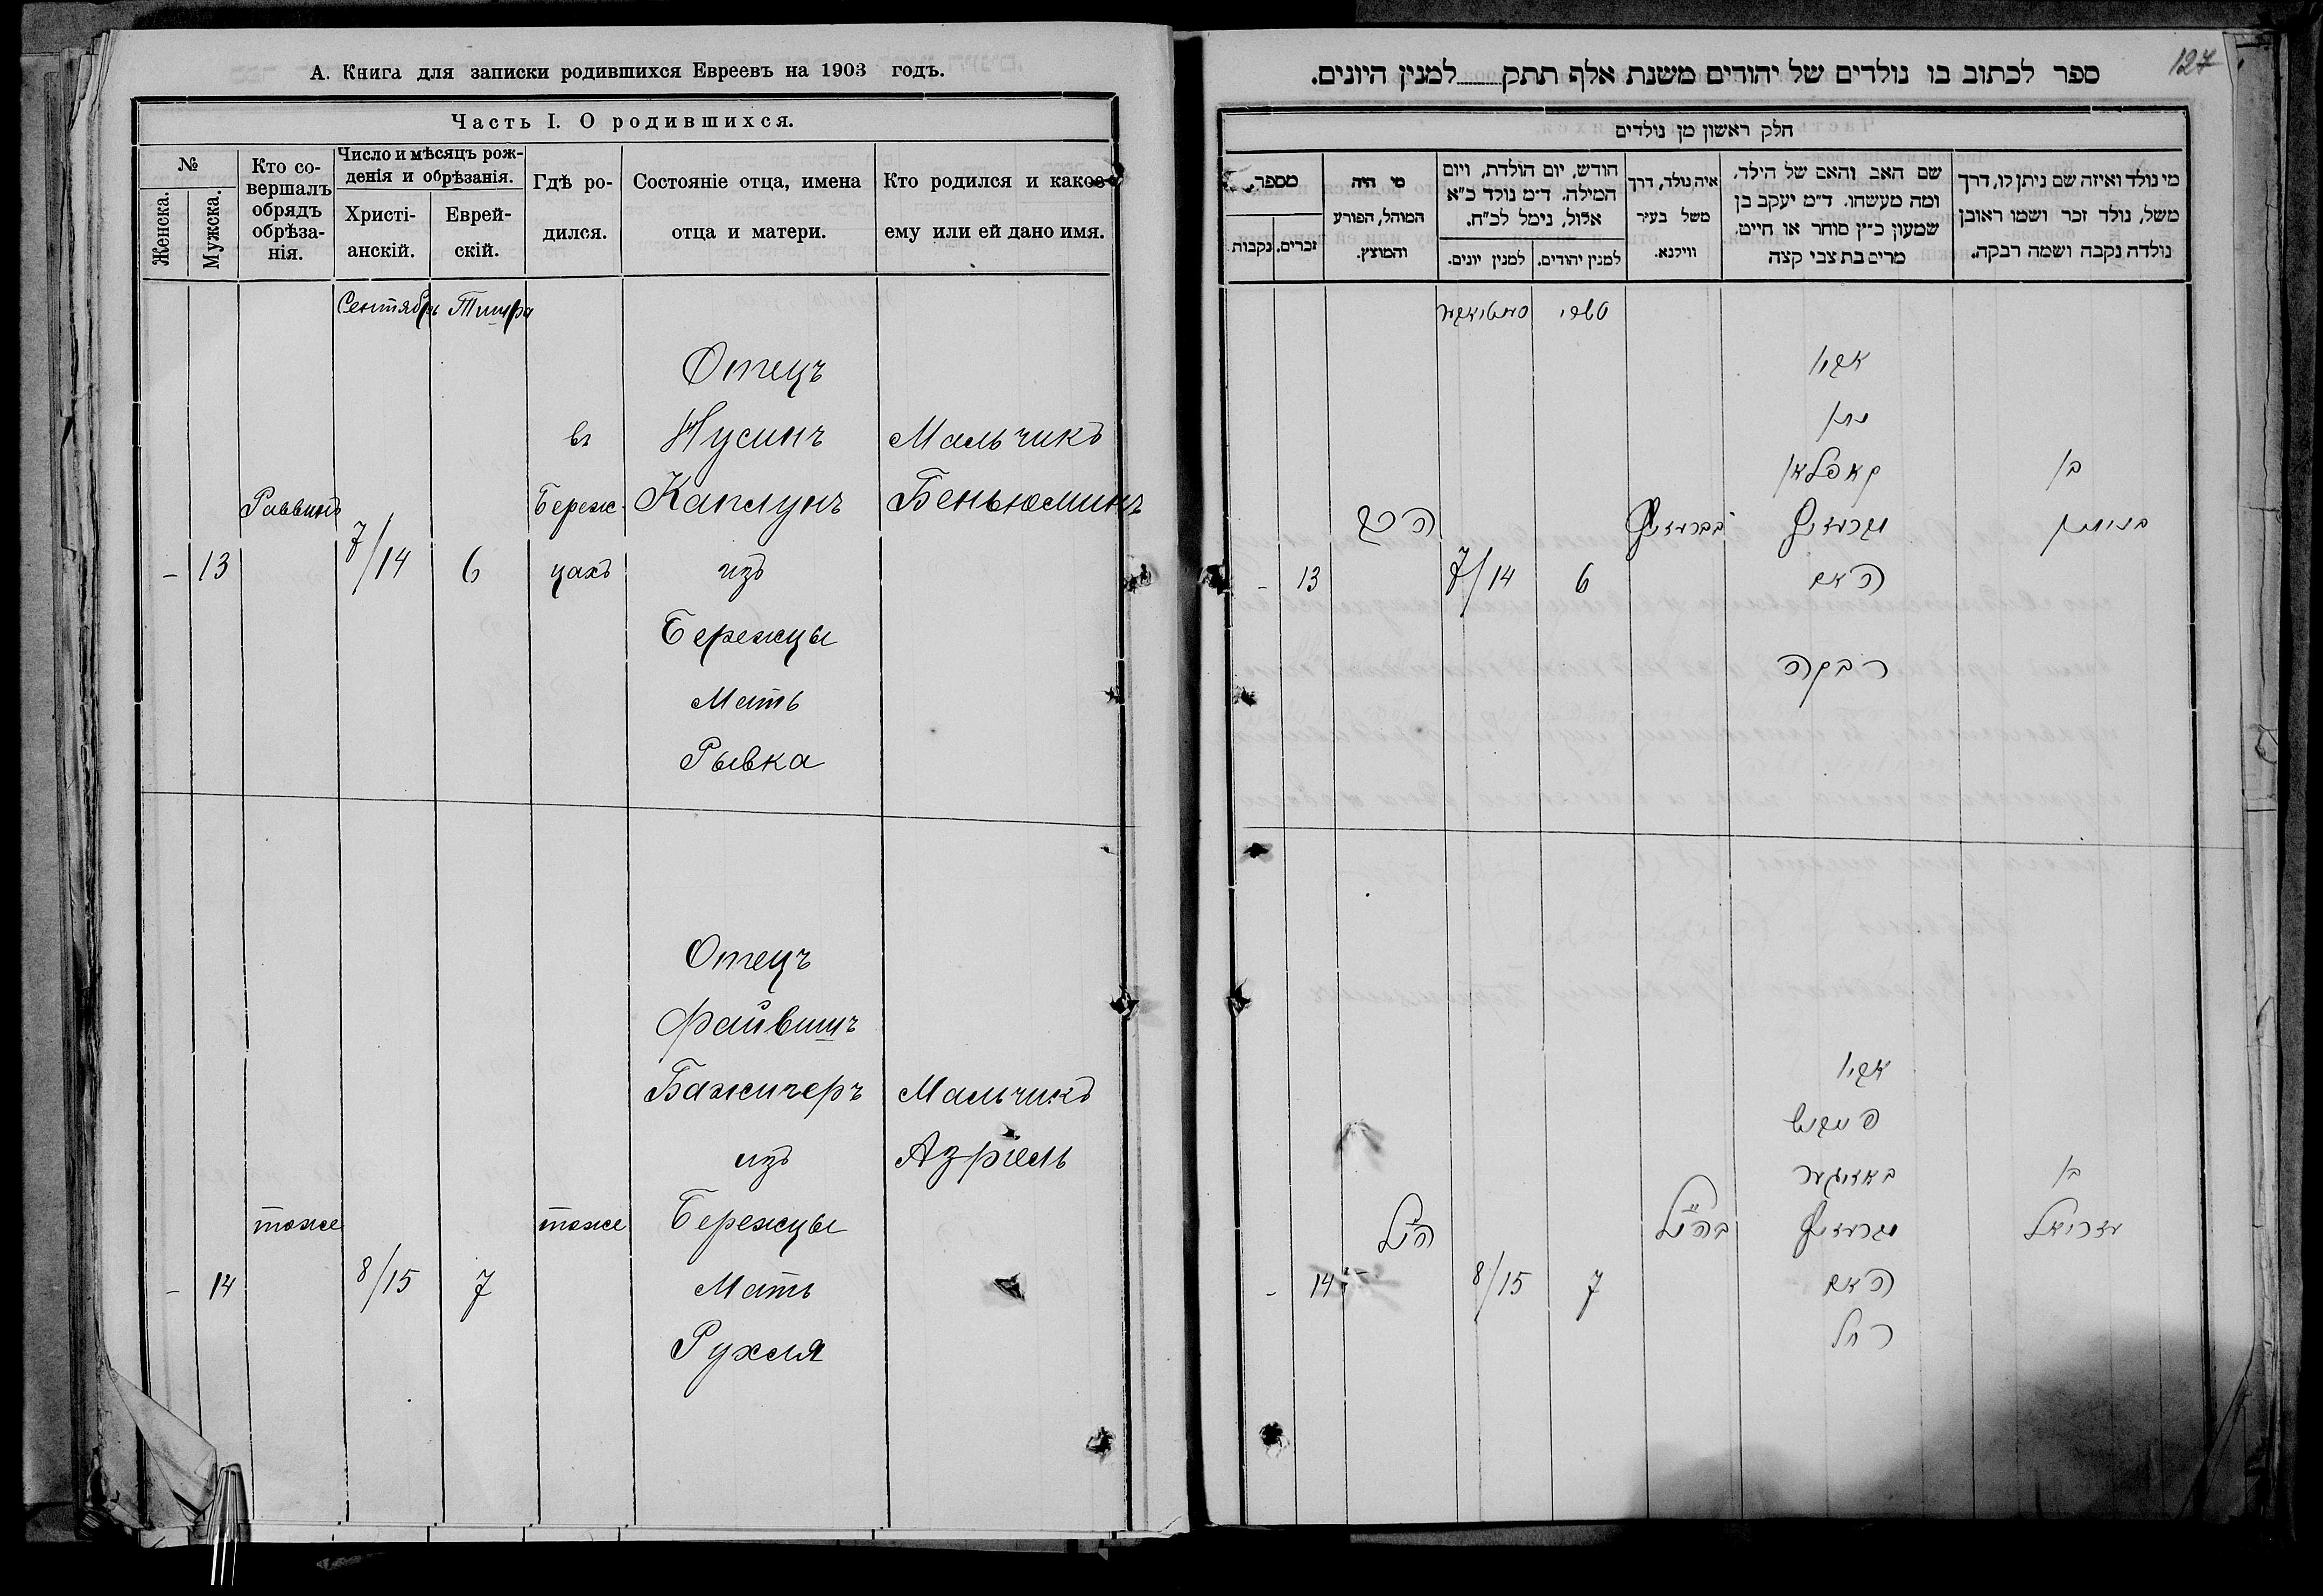 А. Книга для записки родившихся Евреевъ на 1903 годъ.
Часть I. О родившихся.
№
Женска.
Мужска.
Кто со-
вершалъ
обрядъ
обрѣза-
нія.
Число и мѣсяцъ рож-
денія и обрѣзанія.
Христі-
анскій.
Еврей-
скій.
Гдѣ ро-
дился.
Состояніе отца, имена
отца и матери.
Кто родился и какое
ему или ей дано имя.
Сентябрь Тишра
Отецъ
въ Нусинъ Мальчикъ
Раввинъ Береж- Каплунъ Беньюминъ
- 13 7/14 6 цахъ изъ
Бережцы
Мать
Рывка
Отецъ
Файвишъ
Бажичеръ Мальчикъ
изъ Азріель
тоже тоже Бережцы
- 14 8/15 7 Мать
Рухля
127
ספר לכתוב בו נולדים של יהודים משנת אלף תתק למנין היונים.
חלק ראשון מן נולדים
מי נולד ואיזה שם ניתן לו, דרך
משל, נולד זכר ושמו ראובן
נולדה נקבה ושמה רבקה.
שם האב והאם של הילד,
ומה מעשהו. ד״מ יעקב בן
שמעון כ״ץ סוחר או חייט.
מרים בת צבי קצה
איה נולד, דרך
משל בעיר
ווילנא.
חודש, יום הולדת, ויום
המילה. ד״מ נולד כ״א
אלול, נימל לכ״ח.
למנין יהודים.
למנין יונים.
מי היה
המוהל, הפורע
והמוצץ.
מספר
זכרים.
נקבות.
תשרי
אביו
נתן
בן קאפלאן
בנימין
האם
6 7/14 13 -
רבקה
אביו
פייוויש
בן
עזריאל בהנ״ל הנ״ל
האם
7 8/15 14 -
רחל